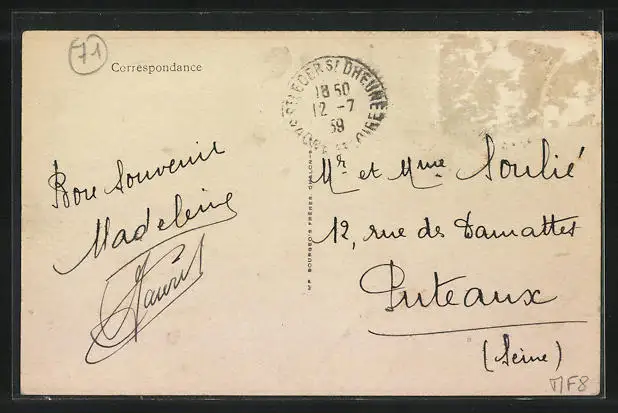 71
Correspondance
ST LEGER S/ DHEUNE
18 50
12 - 7
39
SAONE ET LOIRE
Bon Souvenir
Madeleine
Mr et Mme Soulié
12, rue des Damattes
Puteaux
(Seine)
IMP BOURGEOIS FRÈRES, CHALON-S-
MF8